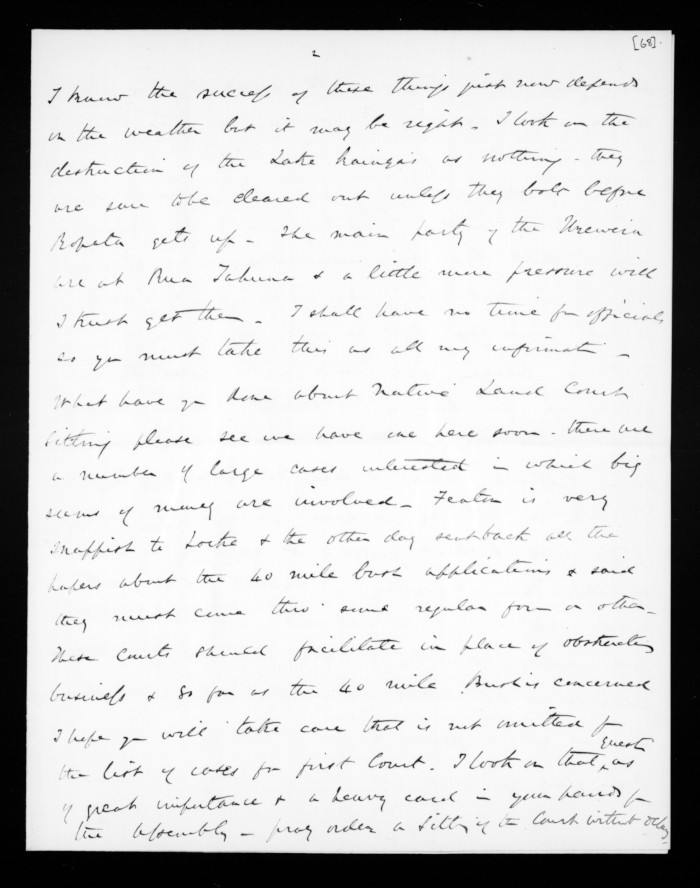 [68].
2
I know the success of these things just now depends
on the weather but it may be right. I look on the
destruction of the Lake kaingas as nothing - they
are sure to be cleared out unless they bolt before
Ropata gets up - The main party of the Urewera
are at Rua Tahuna & a little more pressure will
I trust get them. I shall have no time for officials
so you must take this as all my informatn -
What have you done about Native Land Court
Sitting please see we have one here soon - there are
a number of large cases interested in which big
sums of money are involved - Fenton is very
snappish to Locke & the other day sent back all the
papers about the 40 mile bush applications & said
they must come thro' some regular form or other -
These Courts should facilitate in place of obstructing
business & so far as the 40 mile Bush is concerned
I hope you will take care that is not omitted fr
the list of cases for first Court. I look on that questn as
of great importance & a heavy card in your hands for
the Assembly - pray order a Sittg of the Court without delay -